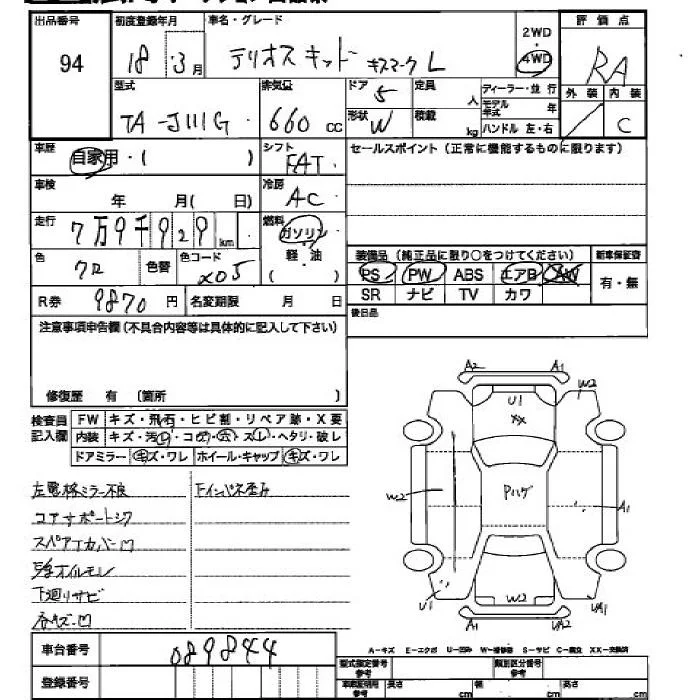 出品番号 初度登録年月 車名・グレード 評価点
94 18・3月 テリオスキッド キスマークL 2WD・4WD RA
外装 内装
C
型式 排気量 ドア 定員 ディーラー・並行
TA-J111G 660cc 5 人 モデル年式 年
形状 積載
W kg ハンドル 左・右
車歴 シフト セールスポイント(正常に機能するものに限ります)
自家用・( ) FAT
車検 冷房
年 月( 日) AC
走行 燃料
7万9千929km ガソリン
色 色替 色コード 軽・油
クロ X05 ( )
装備品(純正品に限り○をつけてください) 新車保証書
PS PW ABS エアB AW 有・無
SR ナビ TV カワ
R券 9870円 名変期限 月 日
後日品
注意事項申告欄(不具合内容等は具体的に記入して下さい)
修復歴 有 〔箇所 〕
検査員記入欄
FW キズ・飛石・ヒビ割・リペア跡・X要
内装 キズ・汚レ・コゲ・穴・スレ・ヘタリ・破レ
ドアミラー キズ・ワレ ホイール・キャップ キズ・ワレ
左電格ミラー不良 Fインパネ歪み
コアサポートシワ
スペアTカバー凹
オイルモレ
下廻リサビ
凹
A2 A1
U1 W2
XX
W2 Pハゲ A1
U1 W2 UA2
A1 A2
A-キズ E-エクボ U-凹み W-補修跡 S-サビ C-腐食 XX-交換済
車台番号 089844
型式指定番号 参考 類別区分番号 参考
登録番号
車庫証明用 参考 長さ cm 幅 cm 高さ cm